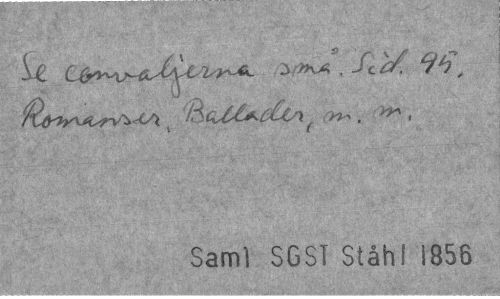 Se convaljerna små. Sid. 95.
Romanser, Ballader, m. m.
Saml SGST Ståhl 1856